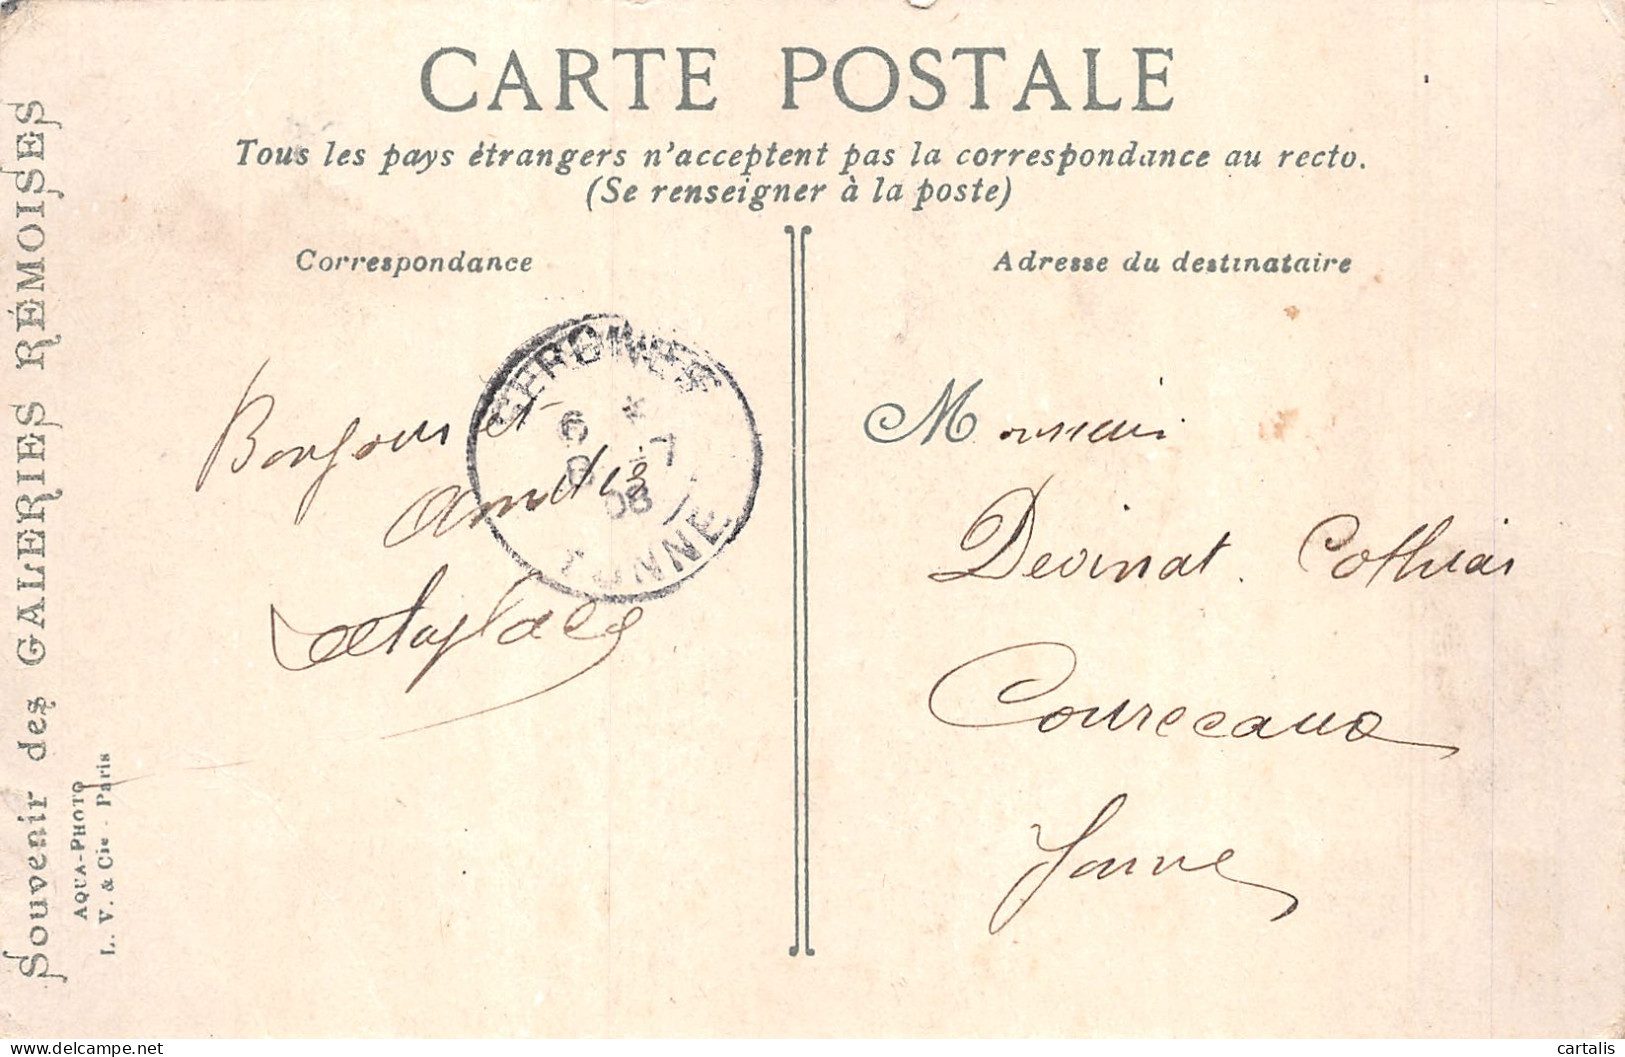 CARTE POSTALE
Tous les pays étrangers n'acceptent pas la correspondance au recto.
(Se renseigner à la poste)
Correspondance
Adresse du destinataire
Bonjour et
amitiés
Monsieur
Devinat
Yonne
YONNE
08
Souvenir des GALERIES RÉMOISES
AQUA-PHOTO
L. V. & Cie - Paris
delcampe.net
cartalis